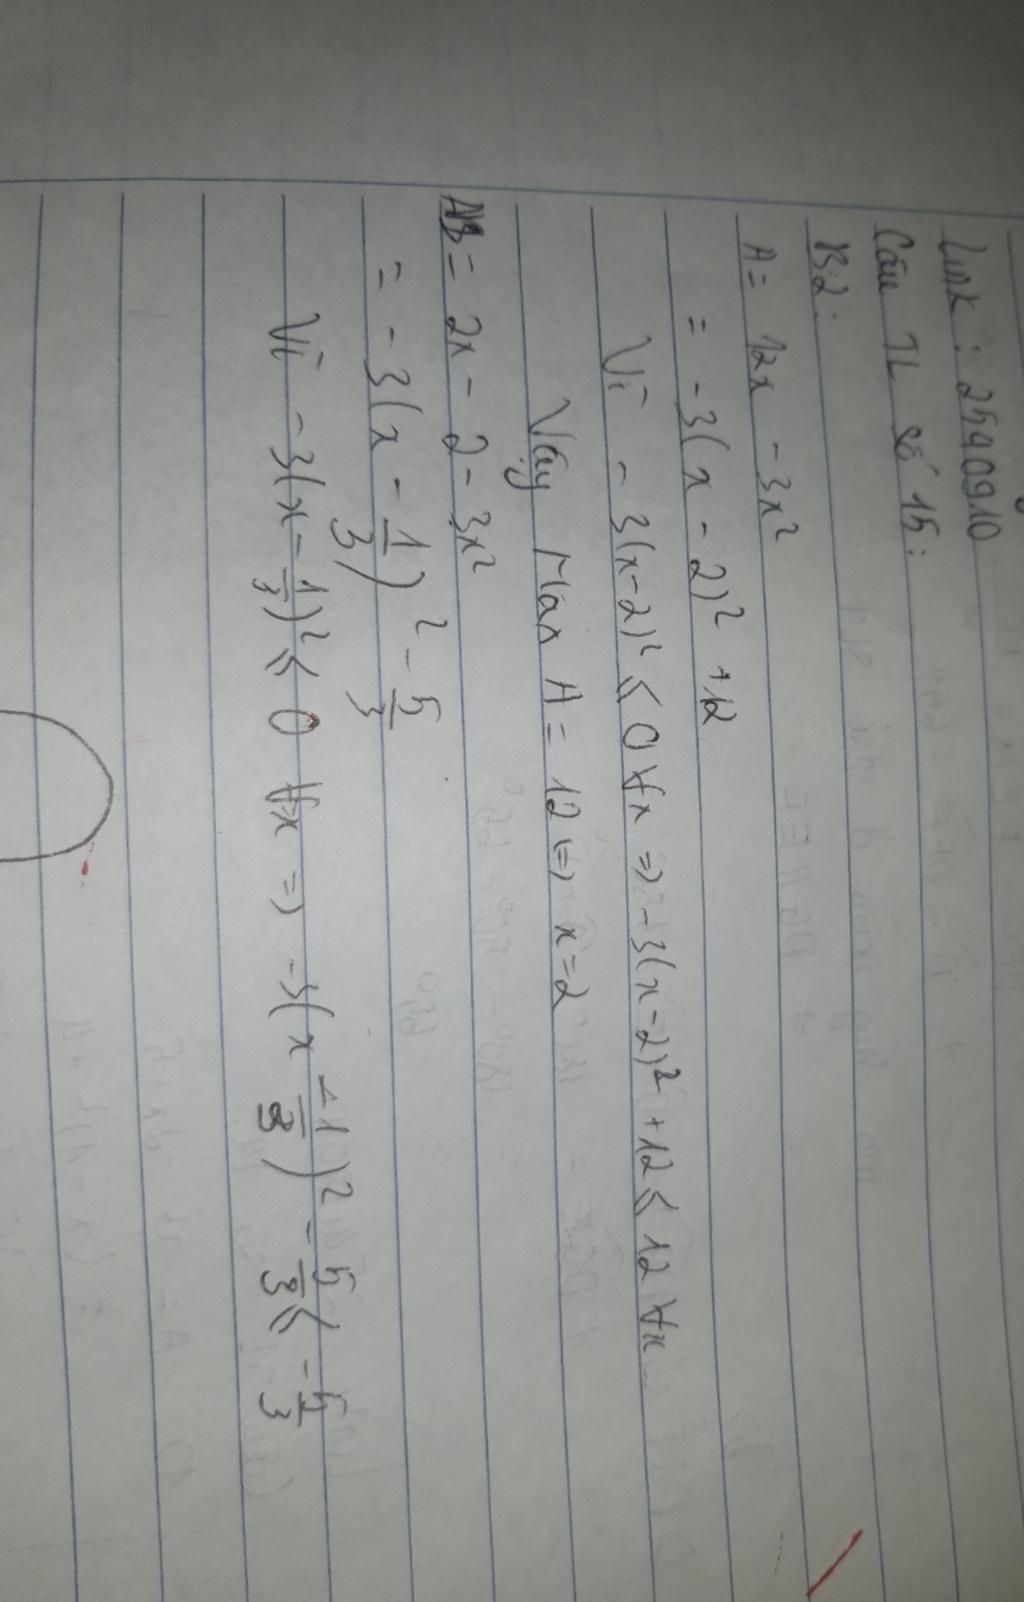 Link: 2540910
Câu TL số 15:
B2:
A = 12x - 3x²
= -3(x - 2)² + 12
Vì -3(x-2)² ≤ 0 ∀x => -3(x-2)² + 12 ≤ 12 ∀x
Vậy Max A = 12 <=> x = 2
B = 2x - 2 - 3x²
= -3(x - 1/3)² - 5/3
Vì -3(x - 1/3)² ≤ 0 ∀x => -3(x - 1/3)² - 5/3 ≤ -5/3